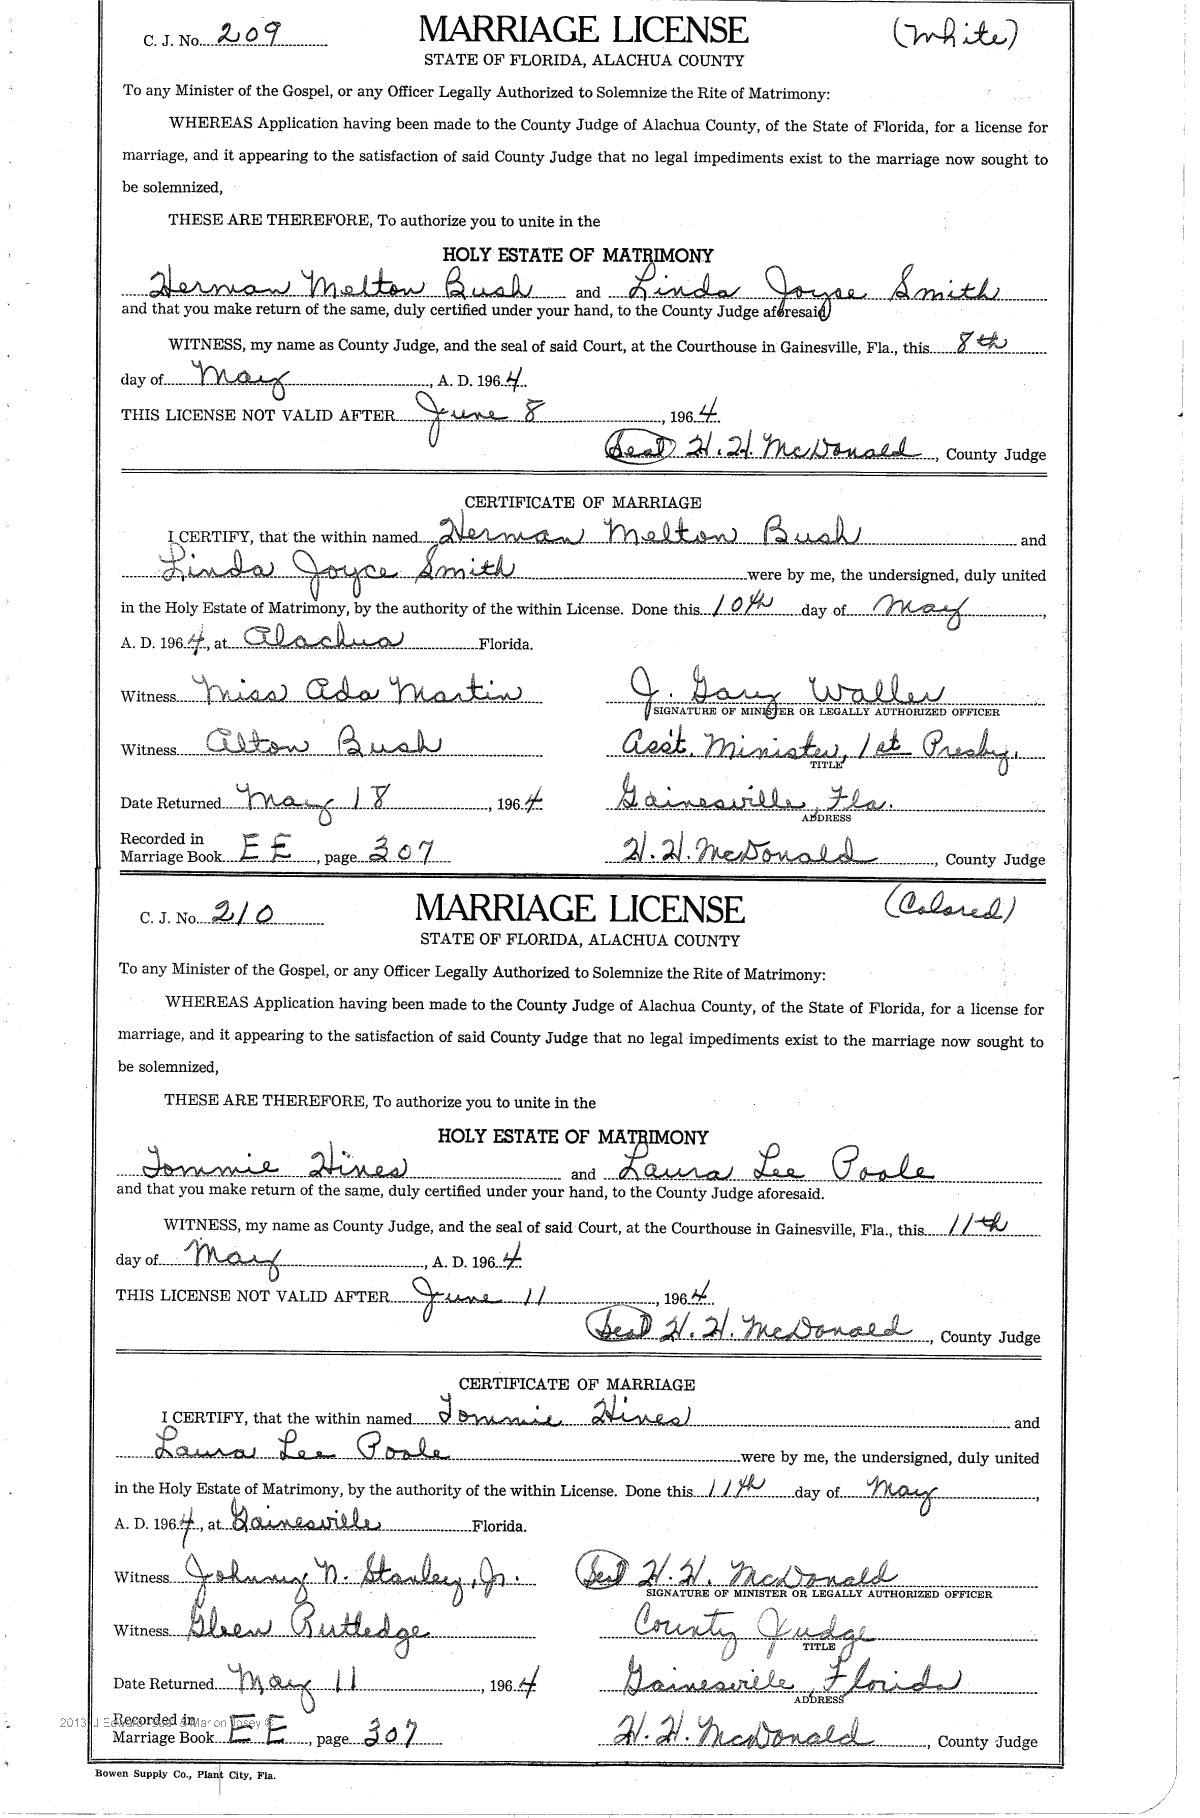 C. J. No. 209 MARRIAGE LICENSE (White)
STATE OF FLORIDA, ALACHUA COUNTY
To any Minister of the Gospel, or any Officer Legally Authorized to Solemnize the Rite of Matrimony:
WHEREAS Application having been made to the County Judge of Alachua County, of the State of Florida, for a license for
marriage, and it appearing to the satisfaction of said County Judge that no legal impediments exist to the marriage now sought to
be solemnized,
THESE ARE THEREFORE, To authorize you to unite in the
HOLY ESTATE OF MATRIMONY
Herman Melton Bush and Linda Joyce Smith
and that you make return of the same, duly certified under your hand, to the County Judge aforesaid
WITNESS, my name as County Judge, and the seal of said Court, at the Courthouse in Gainesville, Fla., this 8th
day of May, A. D. 1964.
THIS LICENSE NOT VALID AFTER June 8, 1964.
(Seal) H. H. McDonald, County Judge
CERTIFICATE OF MARRIAGE
I CERTIFY, that the within named Herman Melton Bush and
Linda Joyce Smith were by me, the undersigned, duly united
in the Holy Estate of Matrimony, by the authority of the within License. Done this 10th day of May,
A. D. 1964, at Alachua Florida.
Witness Miss Ada Martin J. Gary Waller
SIGNATURE OF MINISTER OR LEGALLY AUTHORIZED OFFICER
Witness Alton Bush Ass't. Minister, 1st Presby.
TITLE
Date Returned May 18, 1964 Gainesville, Fla.
ADDRESS
Recorded in
Marriage Book EE, page 307 H. H. McDonald, County Judge
C. J. No. 210 MARRIAGE LICENSE (Colored)
STATE OF FLORIDA, ALACHUA COUNTY
To any Minister of the Gospel, or any Officer Legally Authorized to Solemnize the Rite of Matrimony:
WHEREAS Application having been made to the County Judge of Alachua County, of the State of Florida, for a license for
marriage, and it appearing to the satisfaction of said County Judge that no legal impediments exist to the marriage now sought to
be solemnized,
THESE ARE THEREFORE, To authorize you to unite in the
HOLY ESTATE OF MATRIMONY
Tommie Hines and Laura Lee Poole
and that you make return of the same, duly certified under your hand, to the County Judge aforesaid.
WITNESS, my name as County Judge, and the seal of said Court, at the Courthouse in Gainesville, Fla., this 11th
day of May, A. D. 1964.
THIS LICENSE NOT VALID AFTER June 11, 1964.
(Seal) H. H. McDonald, County Judge
CERTIFICATE OF MARRIAGE
I CERTIFY, that the within named Tommie Hines and
Laura Lee Poole were by me, the undersigned, duly united
in the Holy Estate of Matrimony, by the authority of the within License. Done this 11th day of May,
A. D. 1964, at Gainesville Florida.
Witness Johnny N. Stanley, Jr. (Seal) H. H. McDonald
SIGNATURE OF MINISTER OR LEGALLY AUTHORIZED OFFICER
Witness Gleen Rutledge County Judge
TITLE
Date Returned May 11, 1964 Gainesville, Florida
ADDRESS
2013 J
Recorded in
Marriage Book EE, page 307 H. H. McDonald, County Judge
Bowen Supply Co., Plant City, Fla.